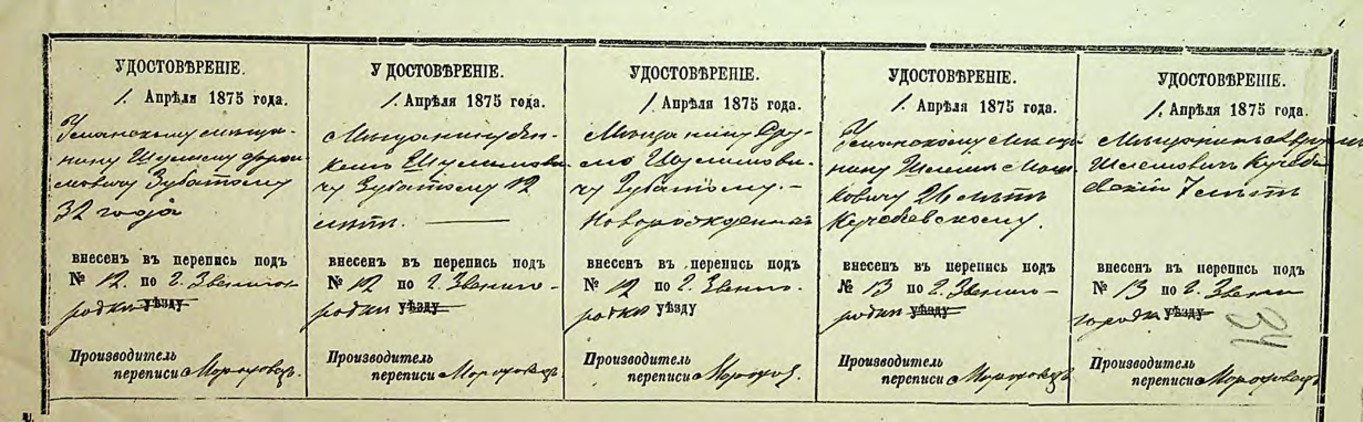 УДОСТОВѢРЕНІЕ.
1. Апрѣля 1875 года.
Уманскому мѣща-
нину Шулиму
Зубатому
32 года
внесенъ въ перепись подъ
№ 12. по г. Звениго-
родки уѣзду
Производитель
переписи Мороховецъ.
УДОСТОВѢРЕНІЕ.
1. Апрѣля 1875 года.
Мѣщанину Ян-
келю Шулимови-
чу Зубатому 12
лѣтъ.
внесенъ въ перепись подъ
№ 12 по г. Звениго-
родки уѣзду
Производитель
переписи Мороховецъ
УДОСТОВѢРЕНІЕ.
1. Апрѣля 1875 года.
Мѣщанину Сру-
лю Шулимови-
чу Зубатому. –
Новорожденный
внесенъ въ перепись подъ
№ 12 по г. Звениго-
родки уѣзду
Производитель
переписи
УДОСТОВѢРЕНІЕ.
1. Апрѣля 1875 года.
Уманскому мѣща-
нину
ковичу 26 лѣтъ
внесенъ въ перепись подъ
№ 13 по г. Звениго-
родки уѣзду
Производитель
переписи Мороховецъ
УДОСТОВѢРЕНІЕ.
1. Апрѣля 1875 года.
Мѣщанинъ
Шлемовичъ
7 лѣтъ
внесенъ въ перепись подъ
№ 13 по г. Звени
городки уѣзду
Производитель
переписи Мороховецъ
34